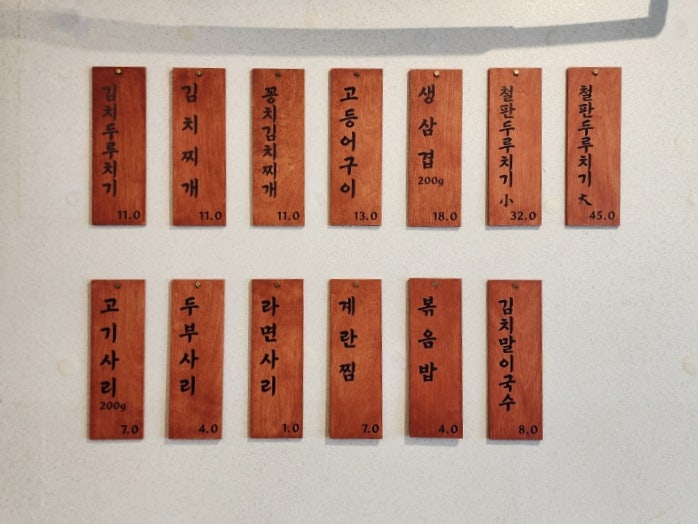 김치두루치기
11.0
김치찌개
11.0
꽁치김치찌개
11.0
고등어구이
13.0
생삼겹
200g
18.0
철판두루치기 小
32.0
철판두루치기 大
45.0
고기사리
200g
7.0
두부사리
4.0
라면사리
1.0
계란찜
7.0
볶음밥
4.0
김치말이국수
8.0